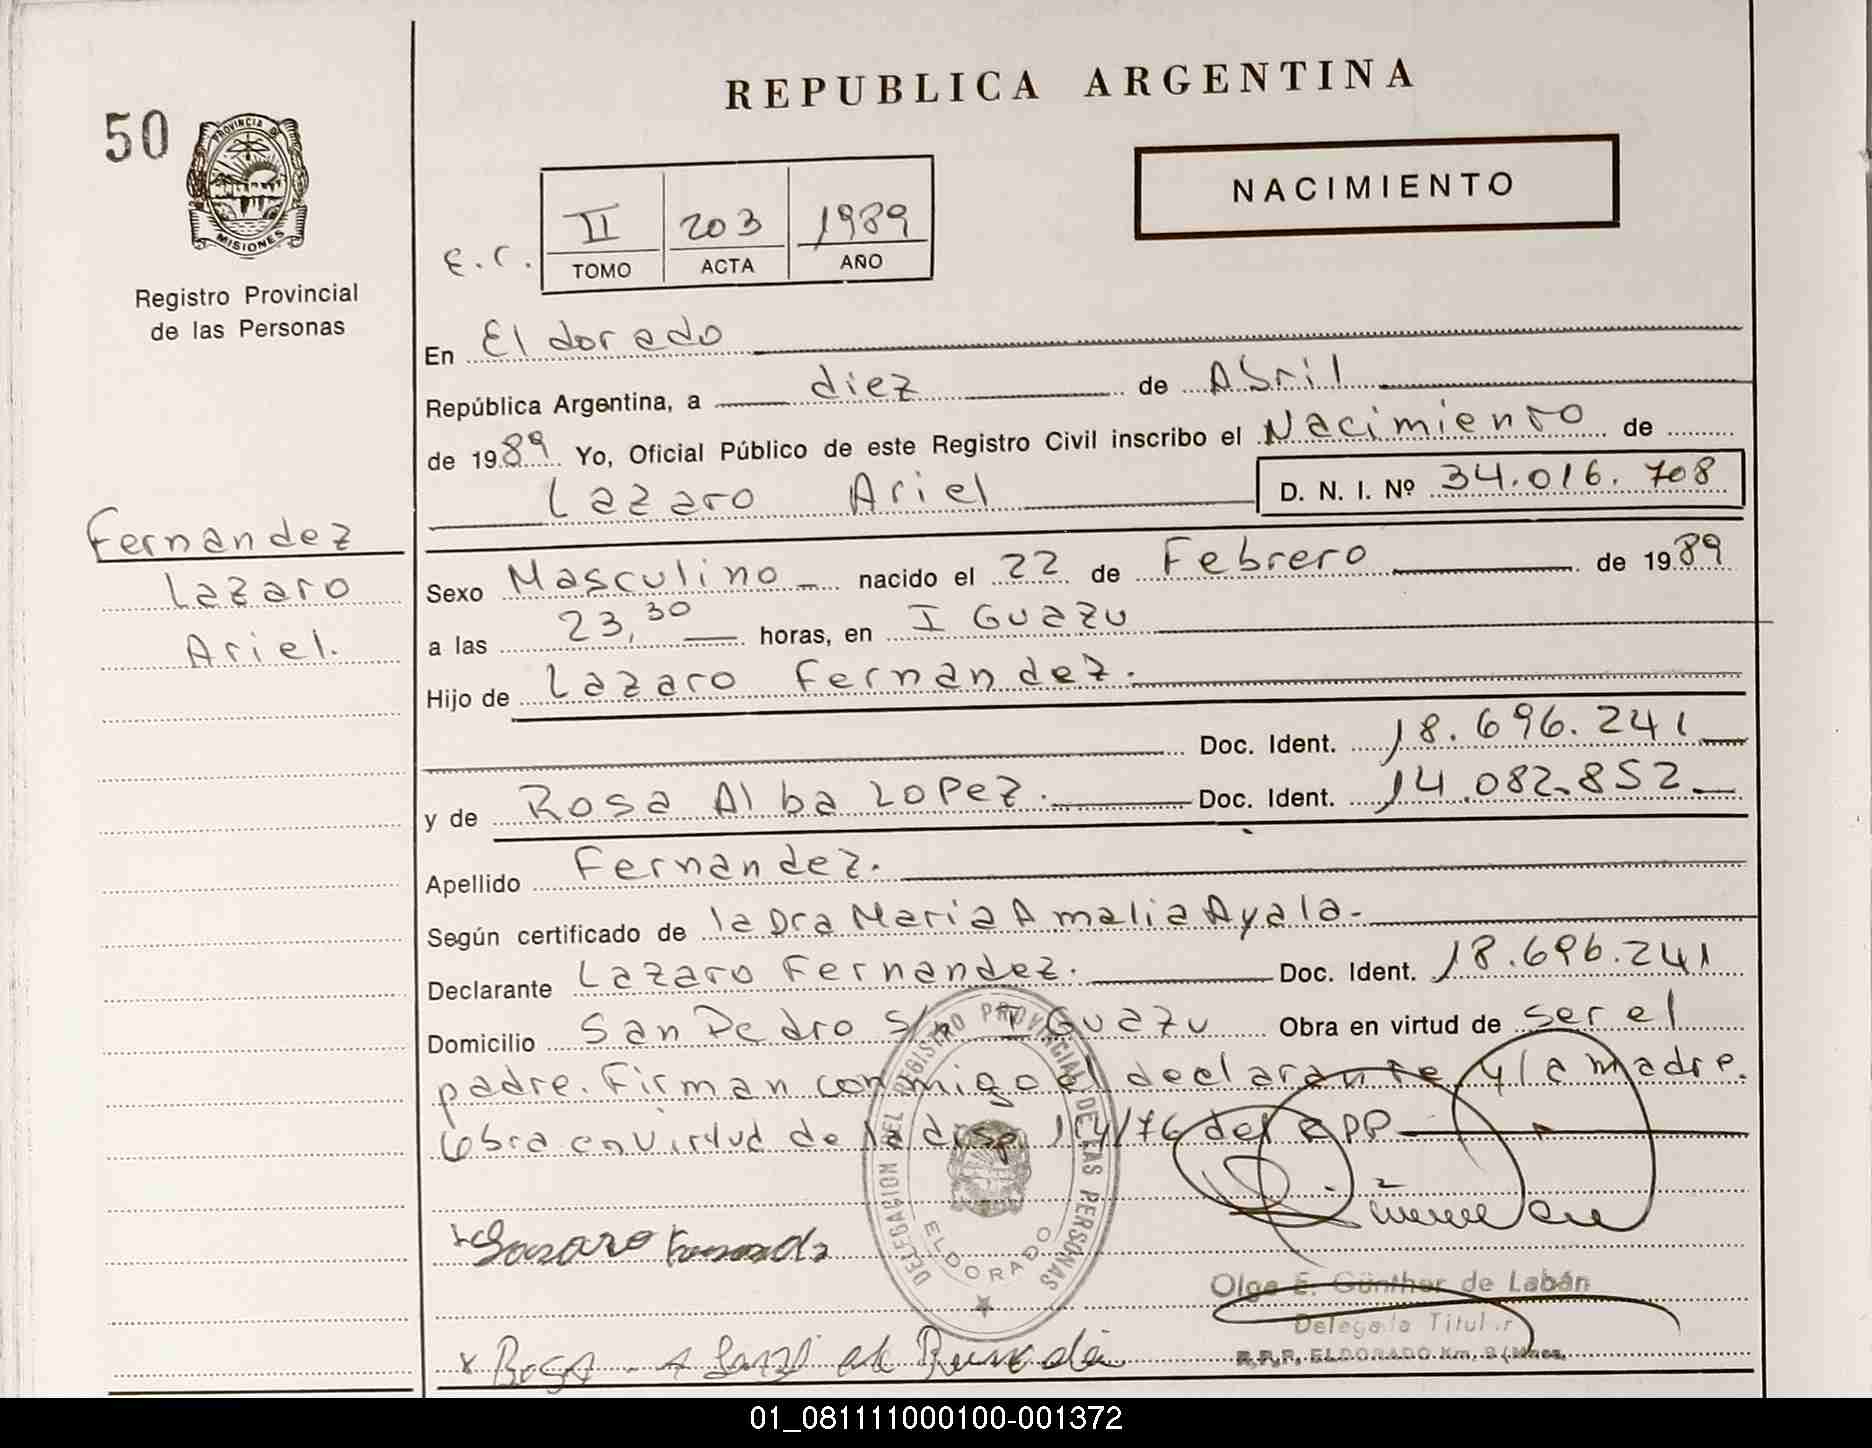 50
PROVINCIA DE
MISIONES
Registro Provincial
de las Personas
Fernandez
Lazaro
Ariel.
REPUBLICA ARGENTINA
NACIMIENTO
E.C.
II 203 1989
TOMO ACTA AÑO
En Eldorado
República Argentina, a diez de Abril
de 1989 Yo, Oficial Público de este Registro Civil inscribo el Nacimiento de
Lazaro Ariel D. N. I. Nº 34.016.708
Sexo Masculino nacido el 22 de Febrero de 1989
a las 23,30 horas, en IGuazu
Hijo de Lazaro Fernandez.
Doc. Ident. 18.696.241
y de Rosa Alba Lopez. Doc. Ident. 14.082.852
Apellido Fernandez.
Según certificado de la Dra Maria Amalia Ayala.
Declarante Lazaro Fernandez. Doc. Ident. 18.696.241
Domicilio San Pedro s/n IGuazu Obra en virtud de ser el
padre. Firman conmigo el declarante y la madre.
Obra en virtud de la disp. 114/76 del RPP
DELEGACION DEL REGISTRO PROVINCIAL DE LAS PERSONAS
ELDORADO
Olga E. Günther de Labán
Delegada Titular
R.P.P. ELDORADO Km. 9 (Mnes.
01_081111000100-001372